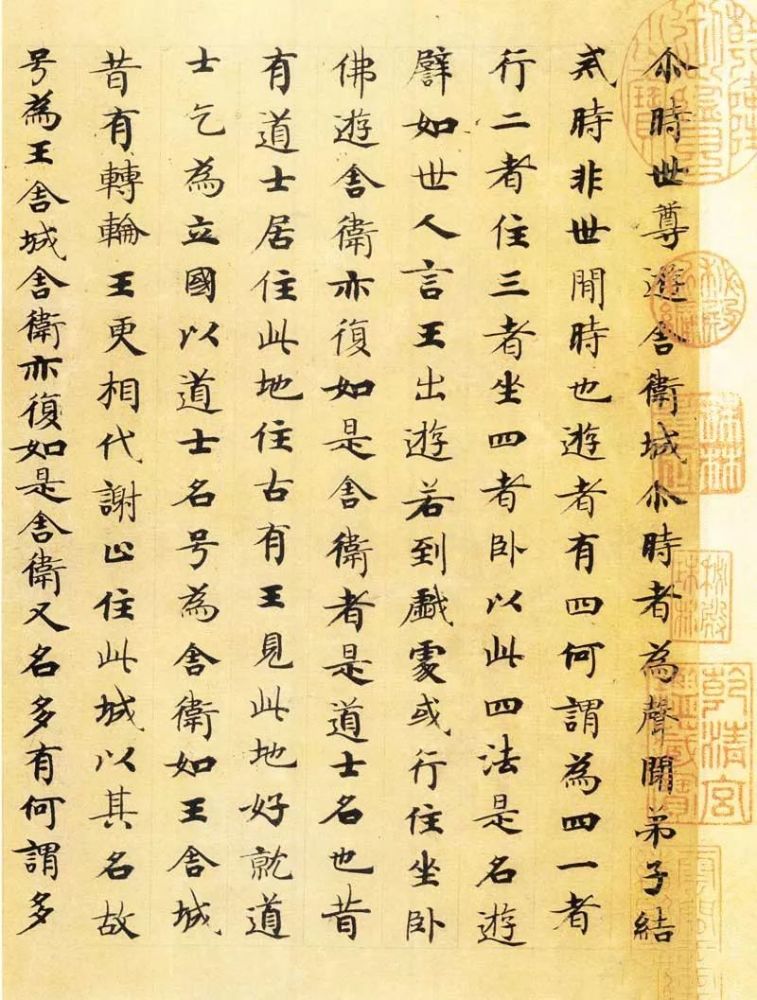 尒時世尊遊舎衛城尒時者為聲聞弟子結
戒時非世間時也遊者有四何謂為四一者
行二者住三者坐四者卧以此四法是名遊
譬如世人言王出遊若到戲處或行住坐卧
佛遊舎衛亦復如是舎衛者是道士名也昔
有道士居住此地住古有王見此地好就道
士乞為立國以道士名号為舎衛如王舎城
昔有轉輪王更相代謝止住此城以其名故
号為王舎城舎衛亦復如是舎衛又名多有何謂多
秘殿
新編
秘殿
珠林
乾清宮
鑒藏寶